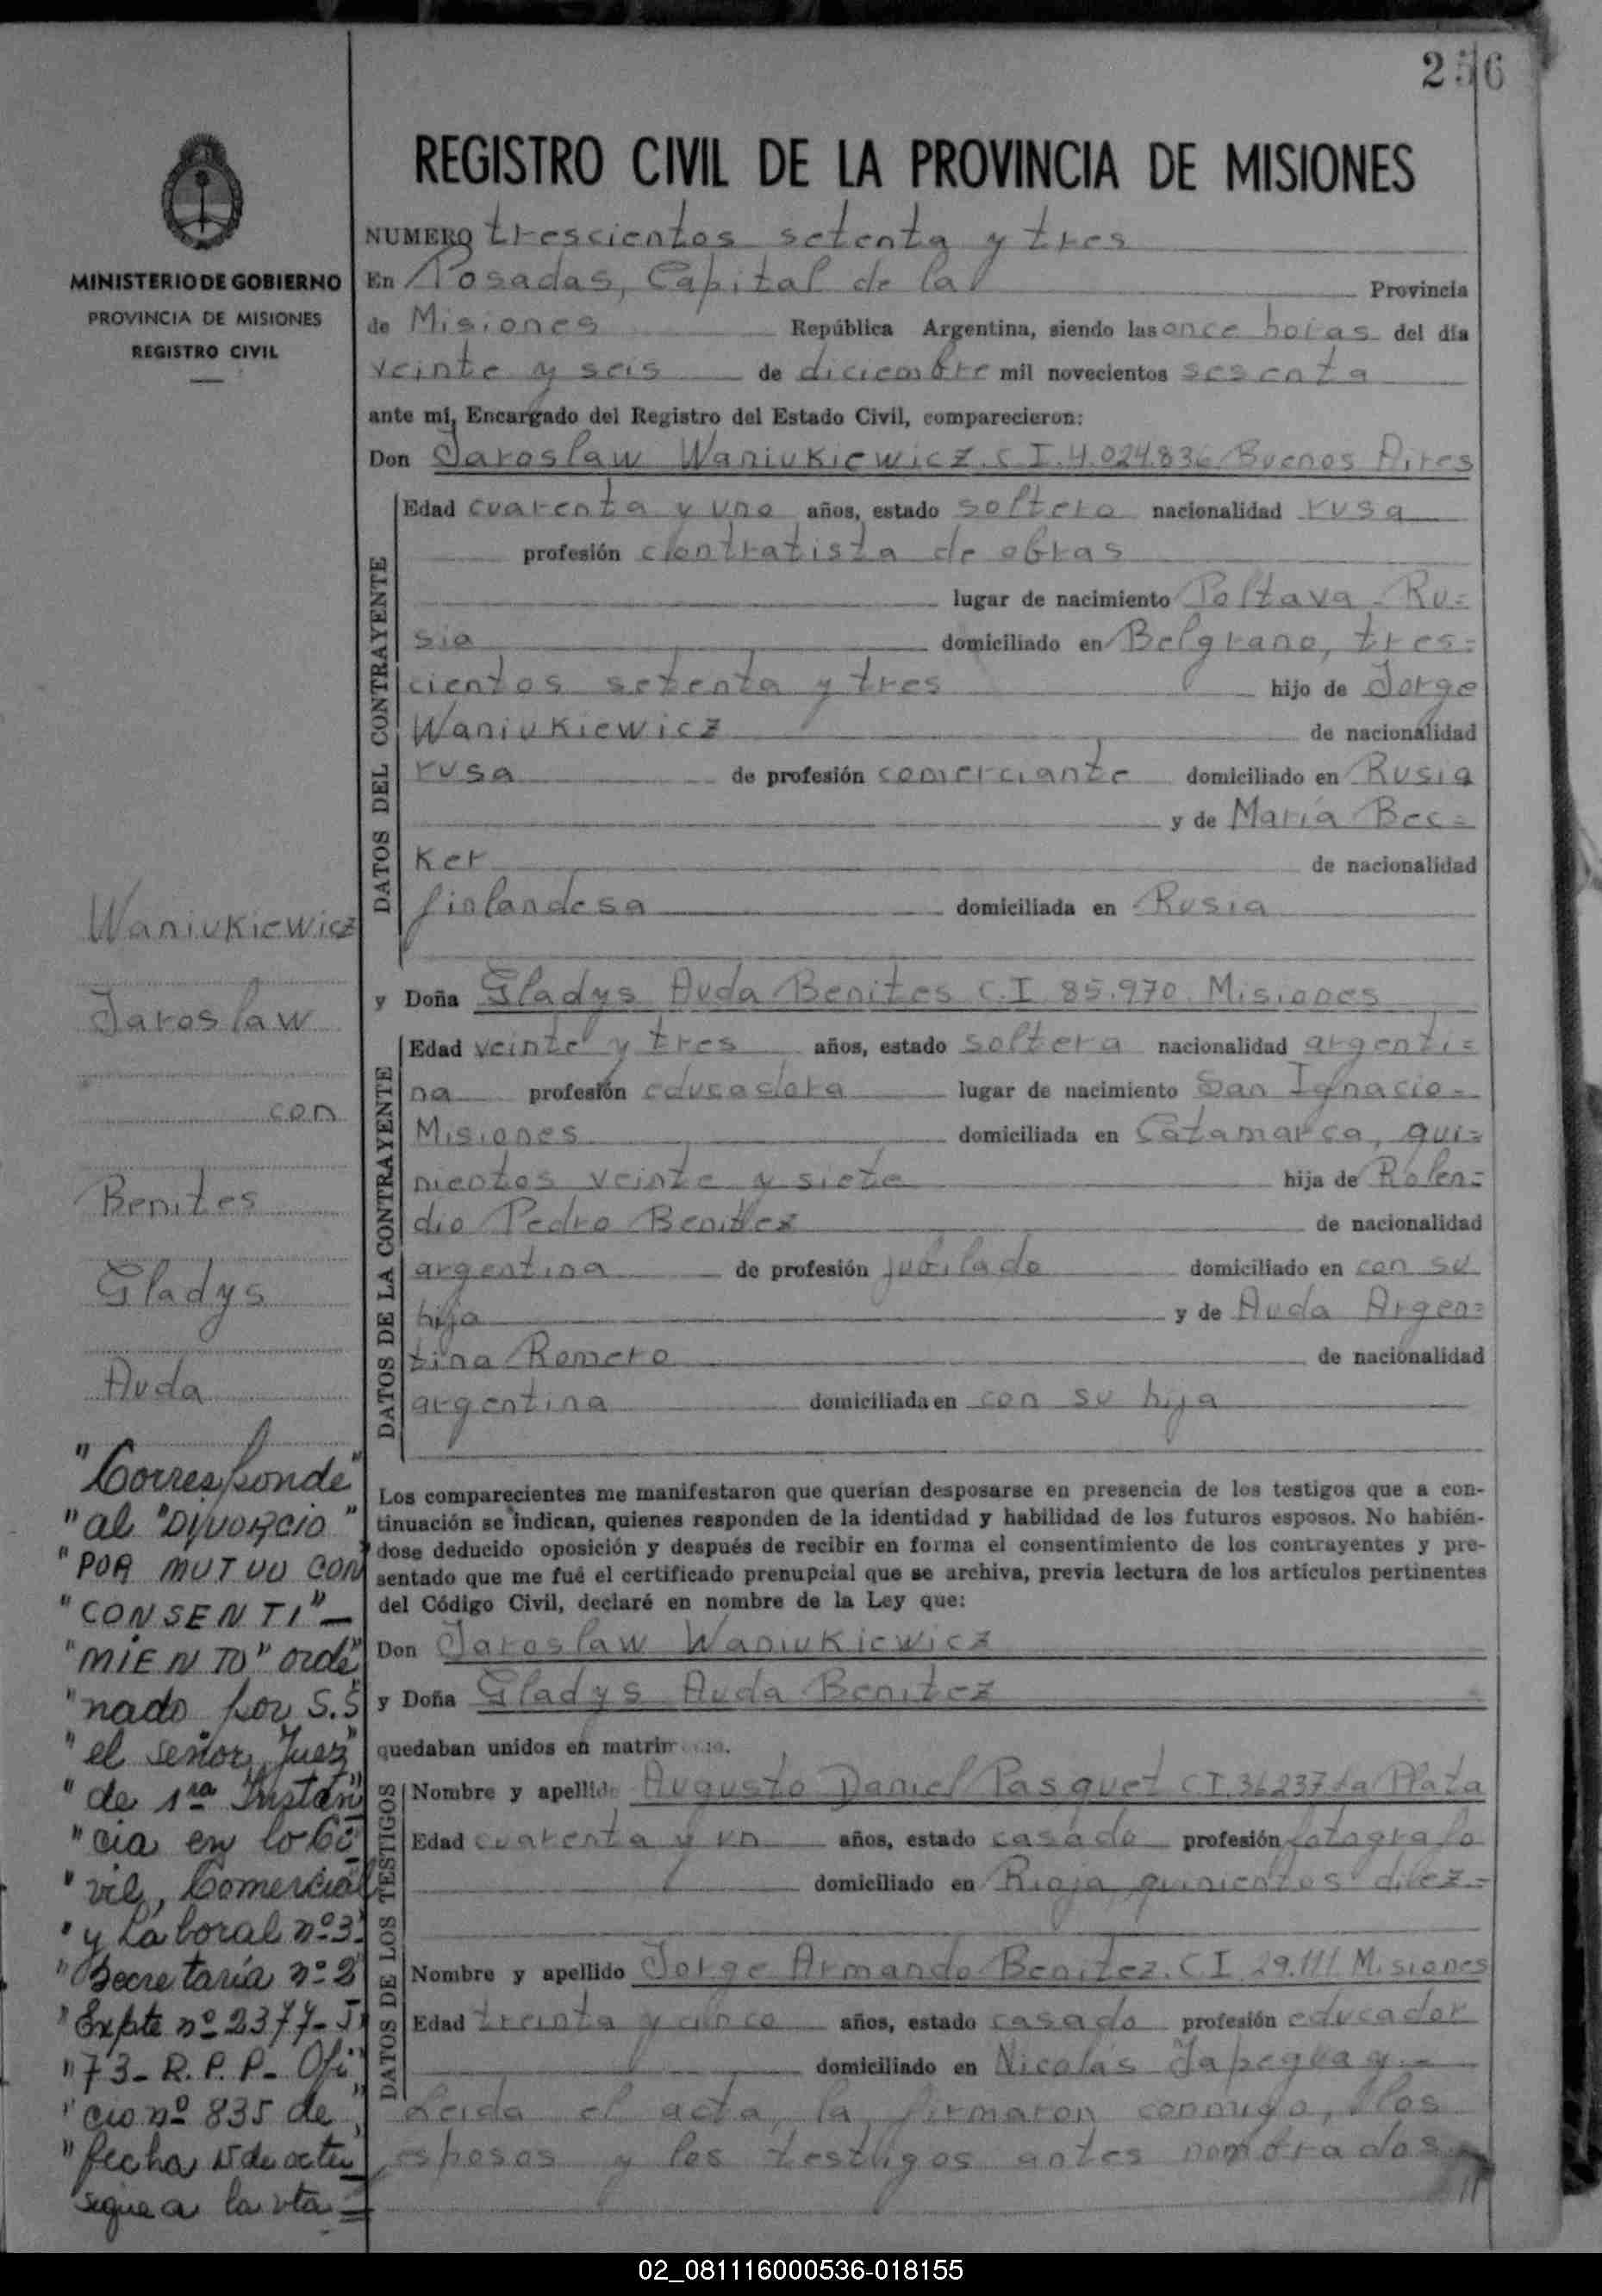 256
REGISTRO CIVIL DE LA PROVINCIA DE MISIONES
MINISTERIO DE GOBIERNO
PROVINCIA DE MISIONES
REGISTRO CIVIL
NUMERO trescientos setenta y tres
En Posadas, Capital de la Provincia
de Misiones República Argentina, siendo las once horas del día
veinte y seis de diciembre mil novecientos sesenta
ante mí, Encargado del Registro del Estado Civil, comparecieron:
Don Jaroslaw Waniukiewicz. C I. 4.024.836 Buenos Aires
DATOS DEL CONTRAYENTE
Edad cuarenta y uno años, estado soltero nacionalidad rusa
profesión contratista de obras
lugar de nacimiento Poltava - Ru=
sia domiciliado en Belgrano, tres=
cientos setenta y tres hijo de Jorge
Waniukiewicz de nacionalidad
rusa de profesión comerciante domiciliado en Rusia
y de María Bec=
ker de nacionalidad
finlandesa domiciliada en Rusia
y Doña Gladys Auda Benites C.I 85.970 Misiones
DATOS DE LA CONTRAYENTE
Edad veinte y tres años, estado soltera nacionalidad argenti=
na profesión educadora lugar de nacimiento San Ignacio -
Misiones domiciliada en Catamarca, qui=
nientos veinte y siete hija de Rolen=
dio Pedro Benitez de nacionalidad
argentina de profesión jubilado domiciliado en con su
hija y de Auda Argen=
tina Romero de nacionalidad
argentina domiciliada en con su hija
Los comparecientes me manifestaron que querían desposarse en presencia de los testigos que a con-
tinuación se indican, quienes responden de la identidad y habilidad de los futuros esposos. No habién-
dose deducido oposición y después de recibir en forma el consentimiento de los contrayentes y pre-
sentado que me fué el certificado prenupcial que se archiva, previa lectura de los artículos pertinentes
del Código Civil, declaré en nombre de la Ley que:
Don Jaroslaw Waniukiewicz
y Doña Gladys Auda Benitez
quedaban unidos en matrim
DATOS DE LOS TESTIGOS
Nombre y apellido Augusto Daniel Pasquet C I. 36237 La Plata
Edad cuarenta y un años, estado casado profesión fotografo
domiciliado en Rioja quinientos diez -
Nombre y apellido Jorge Armando Benitez. C I 29.111 Misiones
Edad treinta y cinco años, estado casado profesión educador
domiciliado en Nicolás Yapeguay. -
Leida el acta, la firmaron conmigo, los
esposos y los testigos antes nombrados
Waniukiewicz
Jaroslaw
con
Benites
Gladys
Auda
"Corresponde"
"al "DIVORCIO"
"POR MUTUO CON
"CONSENTI"-
"MIENTO" orde"
"nado por S.S
"el señor Juez"
"de 1ra Instan"
"cia en lo Ci
"vil, Comercial
"y Laboral nº 3"
"Secretaría nº 2
"Expte nº 2377-J
"73- R.P.P- Ofi"
"cio nº 835 de"
"fecha 15 de octu
sigue a la vta =
02_081116000536-018155